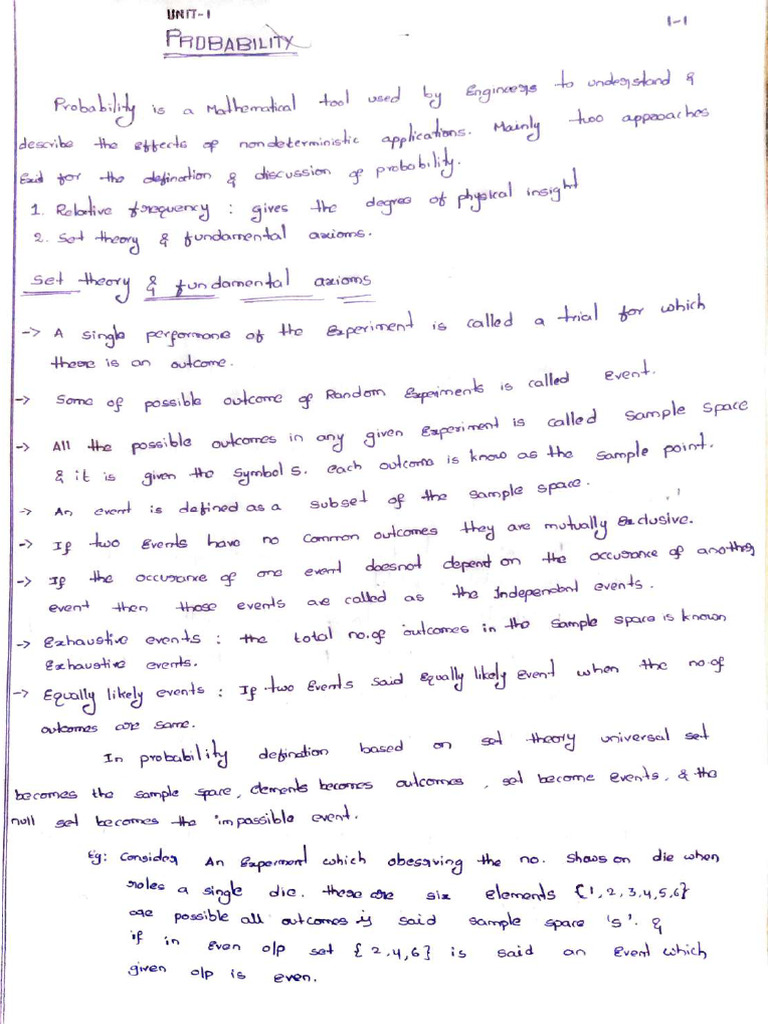 UNIT-1
1-1
PROBABILITY
Probability is a Mathematical tool used by Engineers to understand &
describe the effects of nondeterministic applications. Mainly two approaches
Exid for the defination & discussion of probability.
1. Relative frequency : gives the degree of physical insight
2. Set theory & fundamental axioms.
Set theory & fundamental axioms
-> A single performance of the Experiment is called a trial for which
there is an outcome.
-> Some of possible outcome of Random Experiments is called Event.
-> All the possible outcomes in any given Experiment is called sample space
& it is given the symbol S. each outcome is know as the sample point.
-> An event is defined as a subset of the sample space.
-> If two Events have no common outcomes they are mutually Exclusive.
-> If the occurance of one event doesnot depend on the occurance of another
event then those events are called as the Independent events.
-> Exhaustive events : the total no.of outcomes in the sample space is known
Exhaustive events.
-> Equally likely events : If two Events said Equally likely Event when the no of
outcomes are same.
In probability defination based on set theory universal set
becomes the sample space, elements becomes outcomes, set become events. & the
null set becomes the impassible event.
Eg: Consider An Experment which obesrving the no. shows on die when
roles a single die. there are six elements {1,2,3,4,5,6}
are possible all outcomes is said sample space 'S'. &
if in Even o/p set {2,4,6} is said an Event which
given o/p is even.